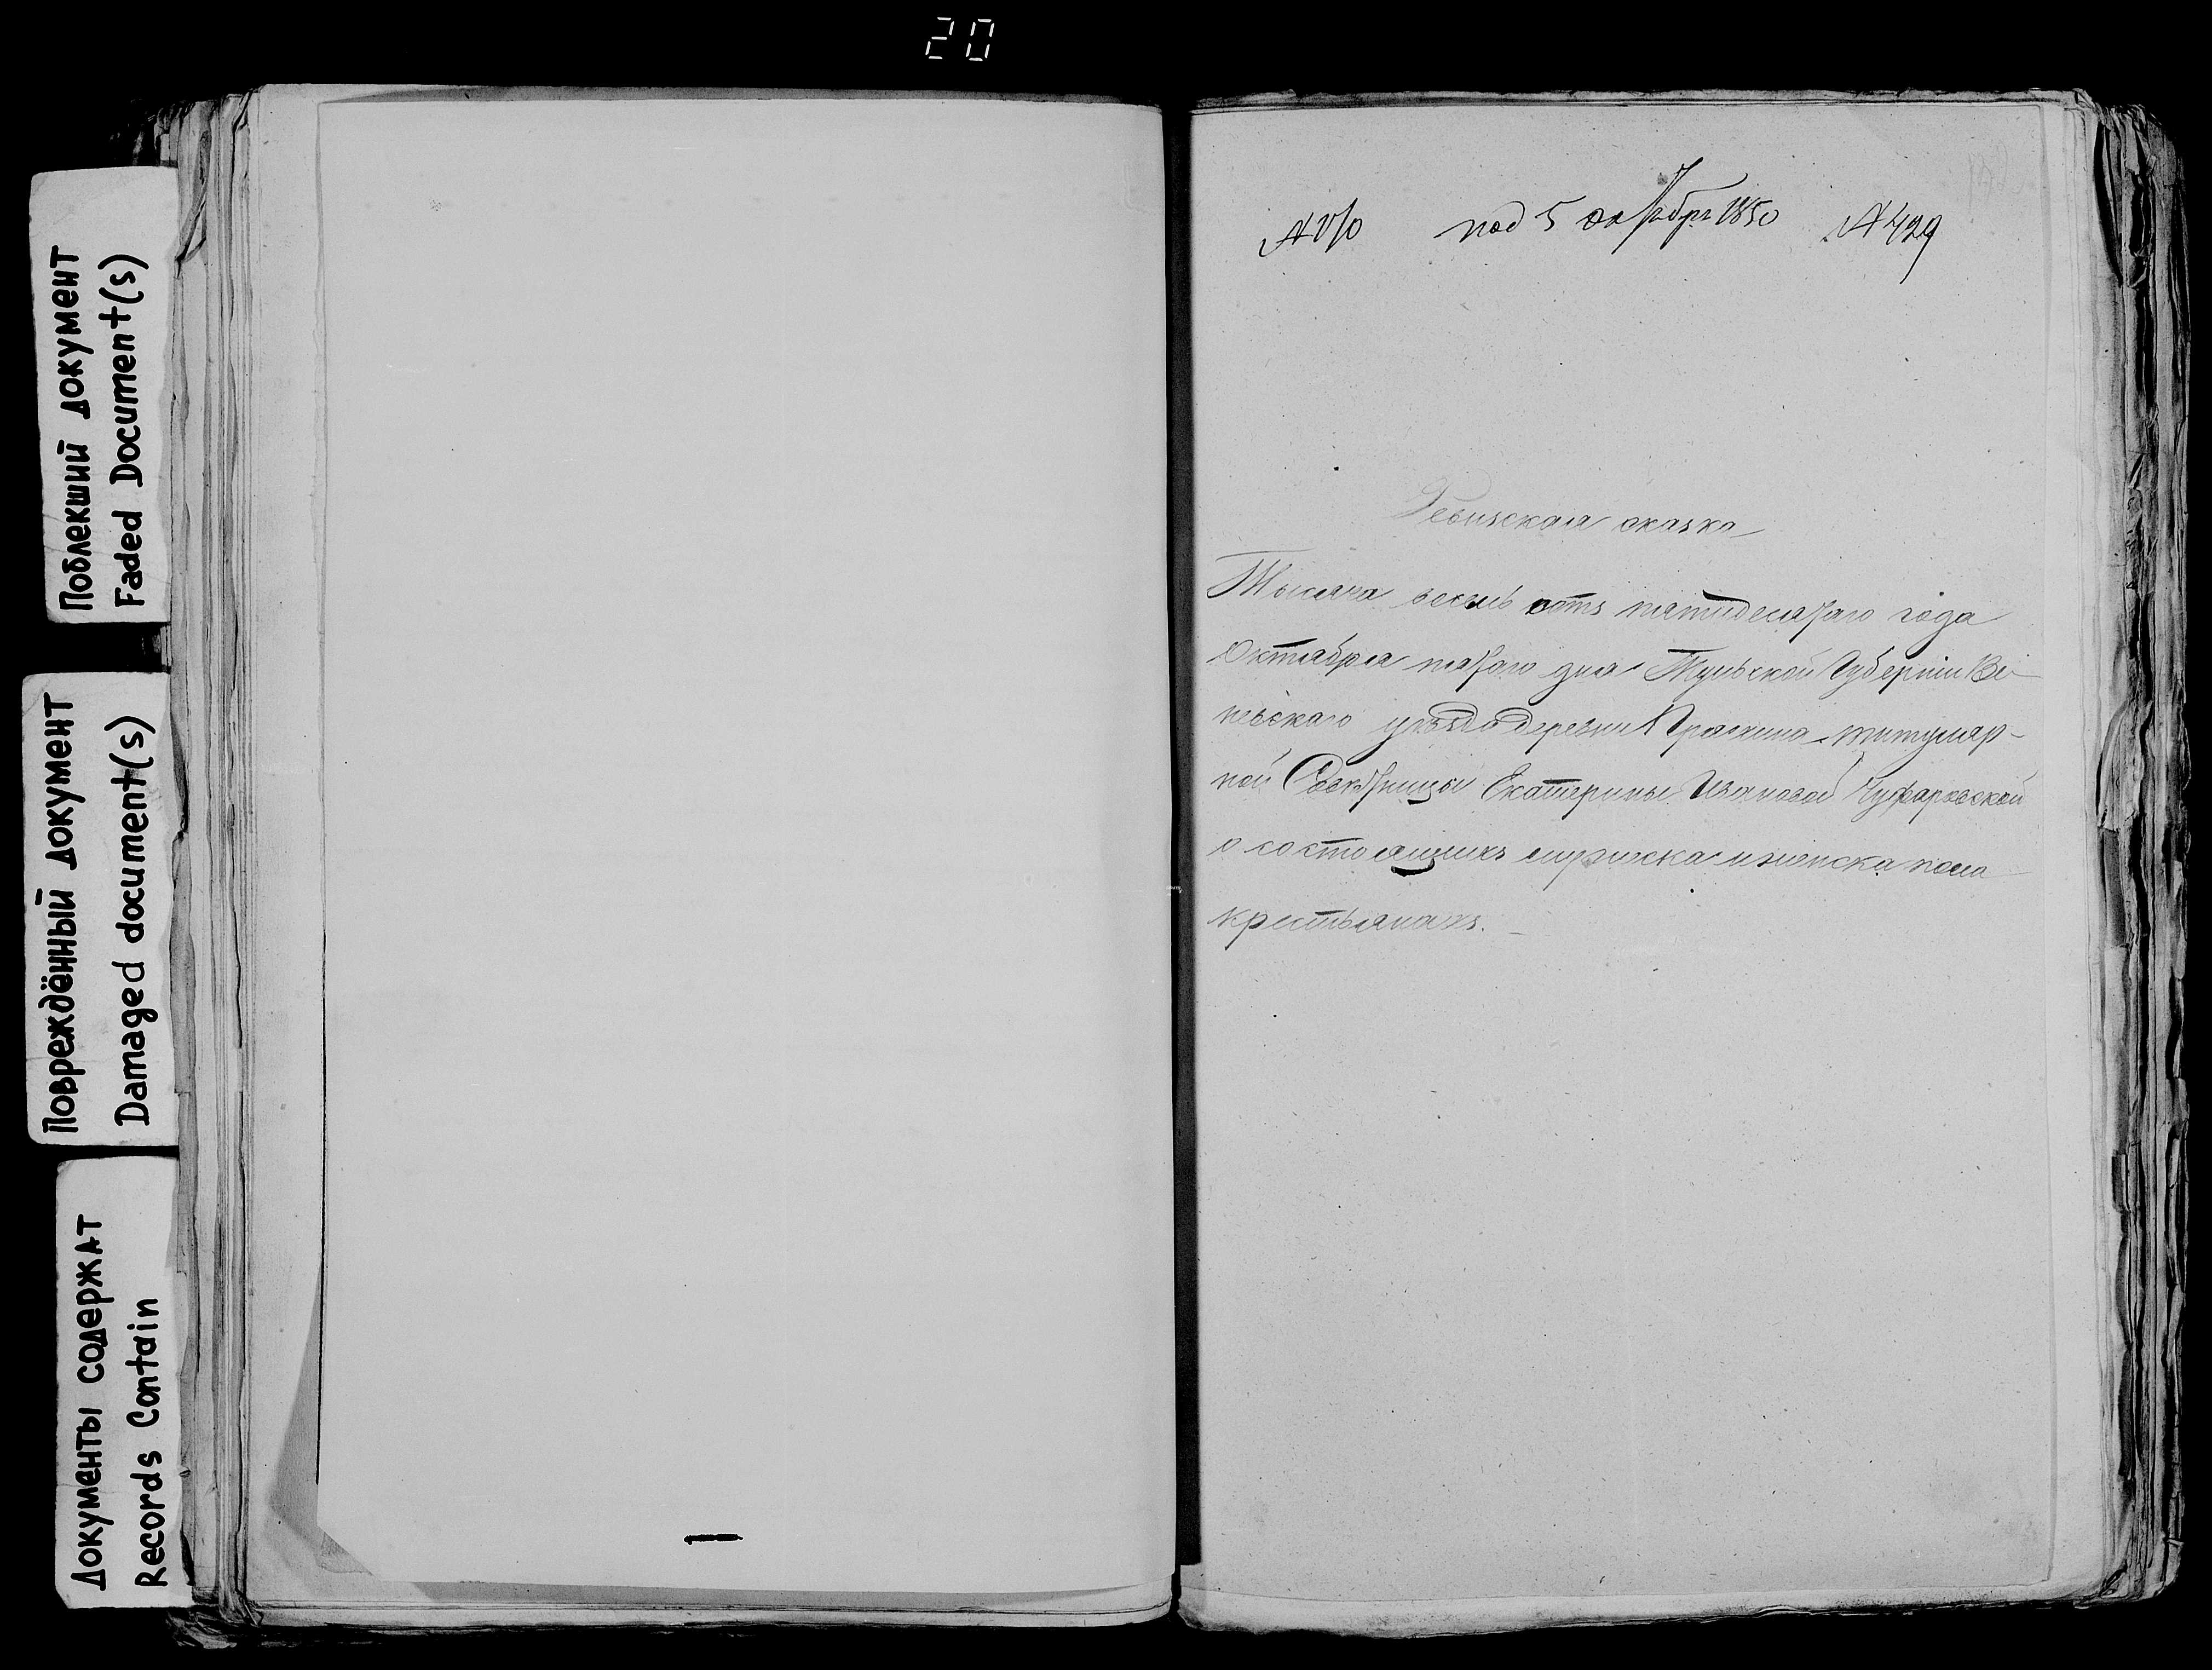 20
Поблекший документ
Faded Document(s)
Повреждённый документ
Damaged document(s)
Документы содержат
Records Contain
под 5 октября 1850 № 429
Ревизская сказка
Тысяча восемь сотъ пятидесятаго года
Октября пятаго дня Тульской Губерніи Ве-
невскаго уѣзда деревни титуляр-
ной Совѣтницы Екатерины Ивановой Чуфаровской
о состоящихъ мужеска и женска пола
крестьянахъ.